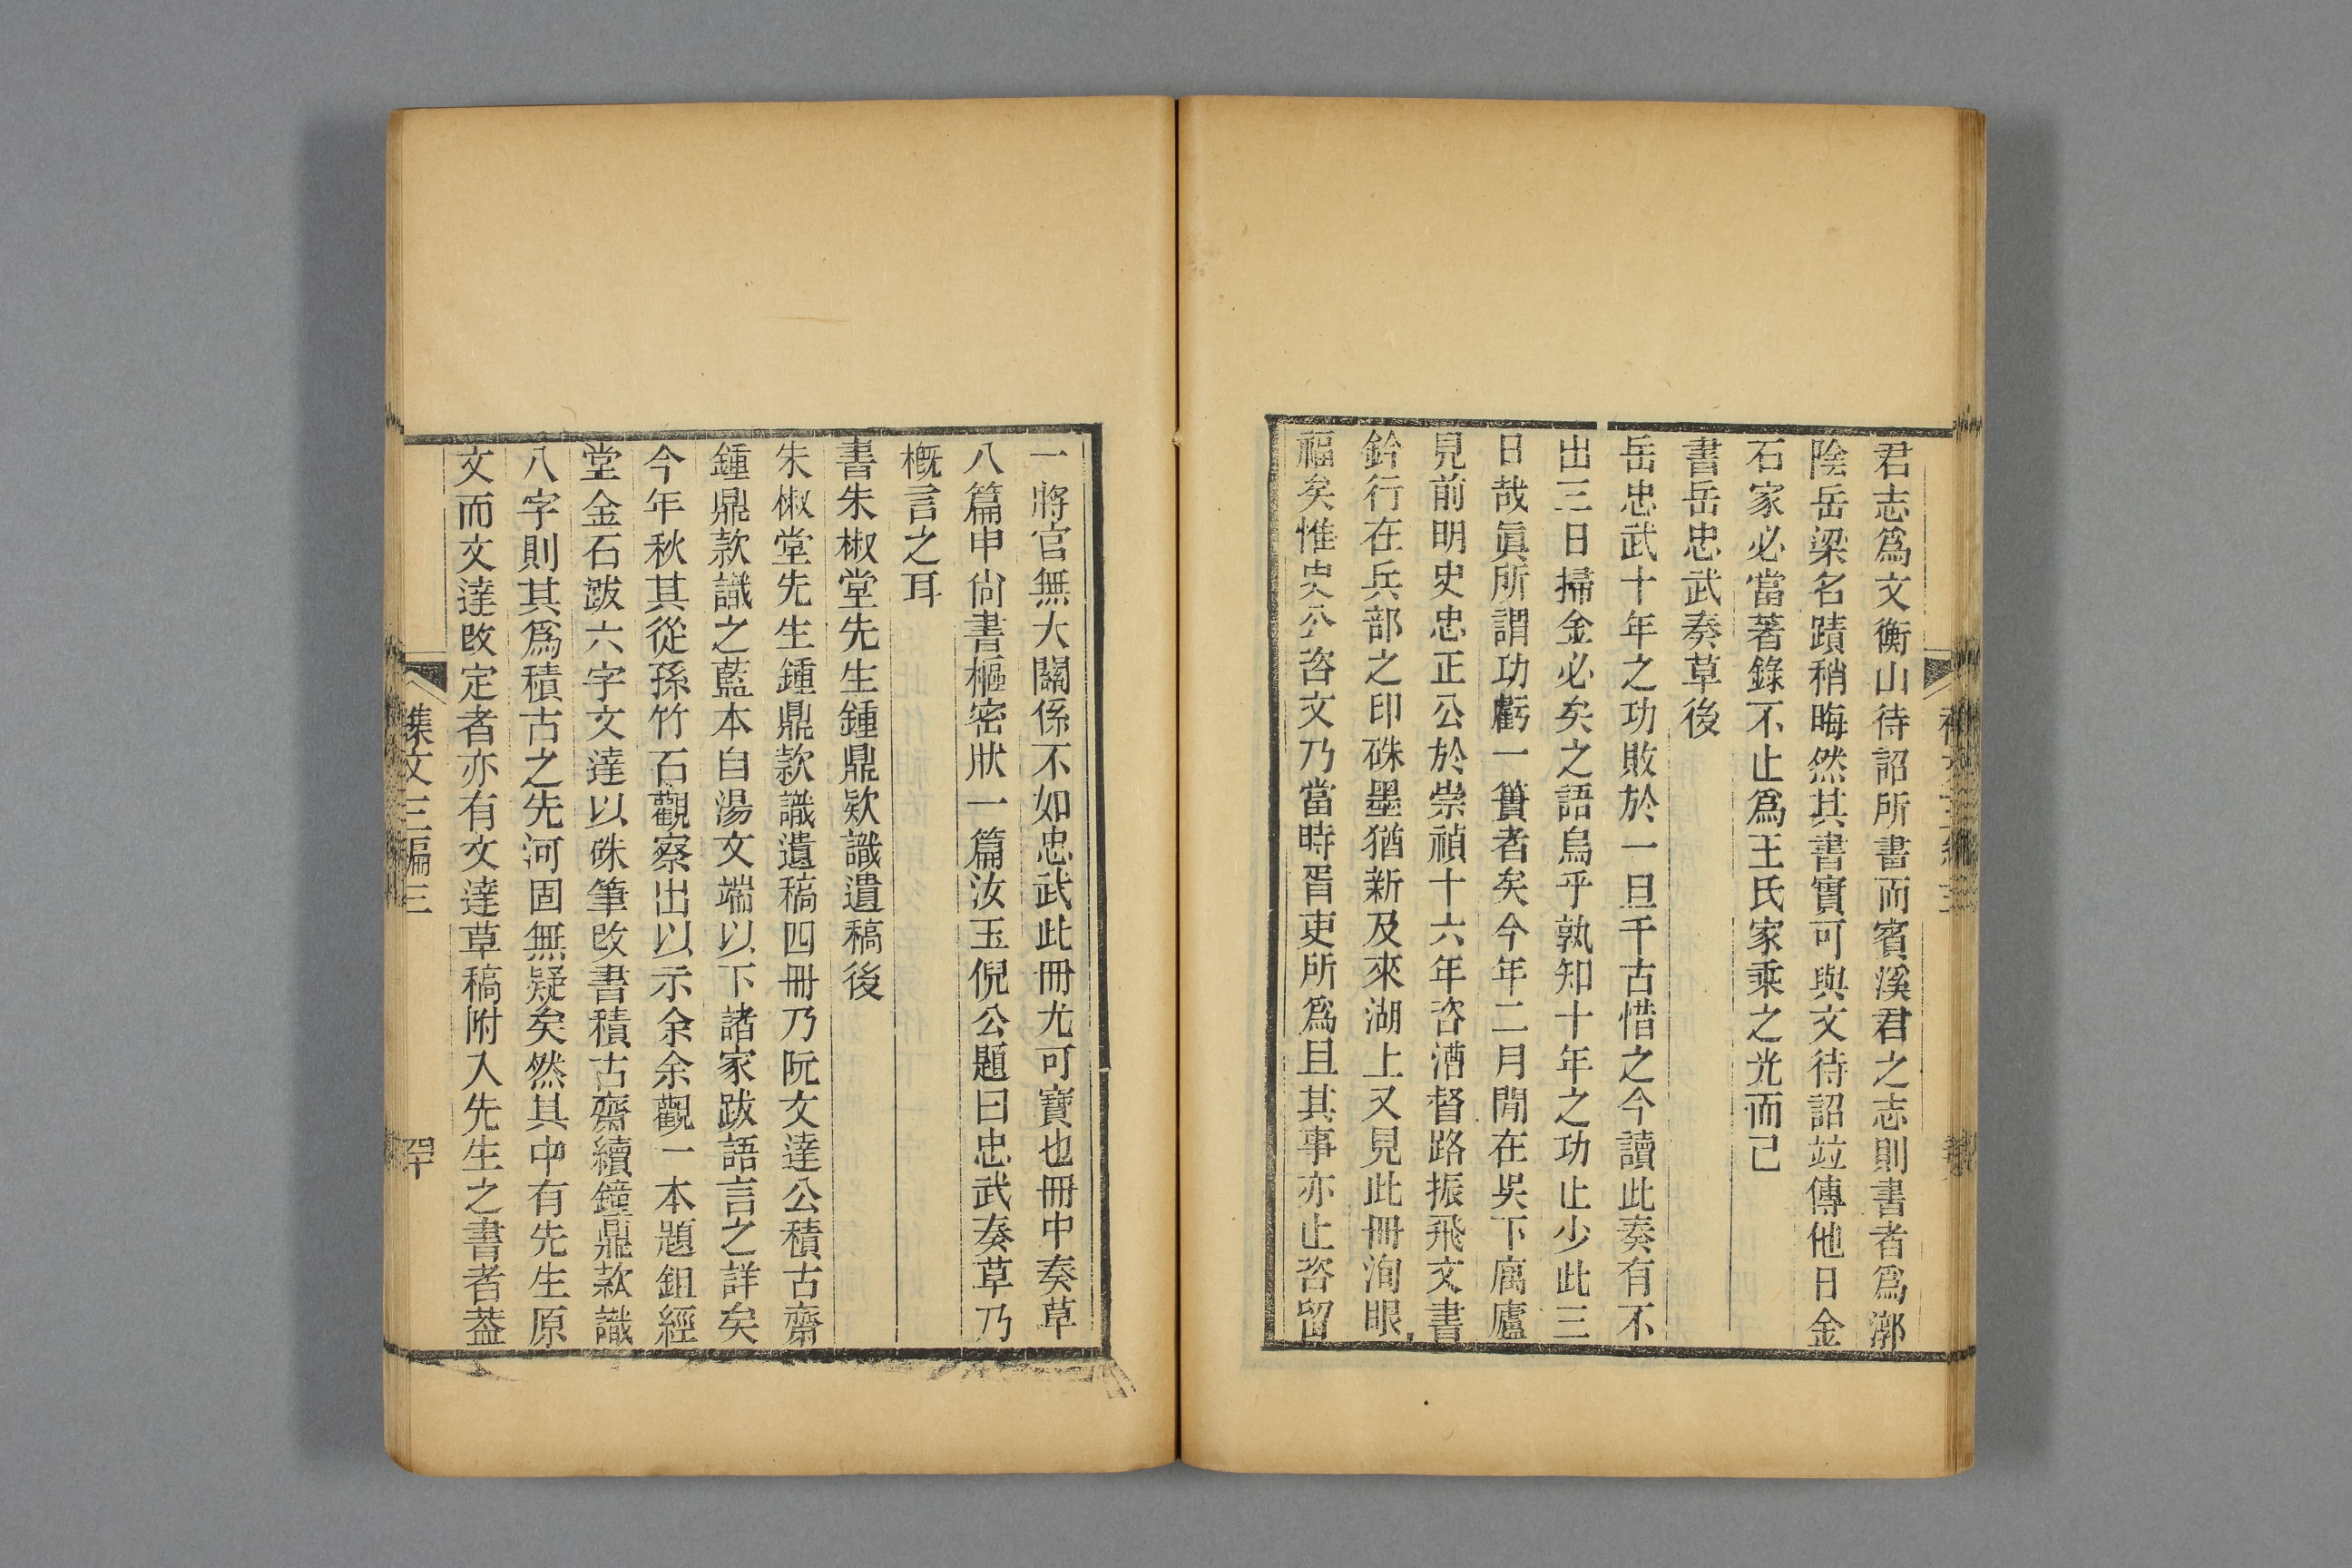 君志爲文衡山待詔所書而賓溪君之志則書者爲漷
陰岳梁名蹟稍晦然其書實可與文待詔竝傳他日金
石家必當著錄不止爲王氏家乘之光而已
書岳忠武奏草後
岳忠武十年之功敗於一旦千古惜之今讀此奏有不
出三日掃金必矣之語烏乎孰知十年之功止少此三
日哉眞所謂功虧一簣者矣今年二月閒在吳下廎廬
見前明史忠正公於崇禎十六年咨漕督路振飛文書
鈐行在兵部之印硃墨猶新及來湖上又見此冊洵眼
福矣惟史公咨文乃當時胥吏所爲且其事亦止咨留
一將官無大關係不如忠武此冊尤可寶也冊中奏草
八篇申尙書樞密狀一篇汝玉倪公題曰忠武奏草乃
槪言之耳
書朱椒堂先生鍾鼎欵識遺稿後
朱椒堂先生鍾鼎款識遺稿四冊乃阮文達公積古齋
鍾鼎款識之藍本自湯文端以下諸家跋語言之詳矣
今年秋其從孫竹石觀察出以示余余觀一本題鉏經
堂金石跋六字文達以硃筆改書積古齋續鐘鼎款識
八字則其爲積古之先河固無疑矣然其中有先生原
文而文達改定者亦有文達草稿附入先生之書者葢
襍文三編三